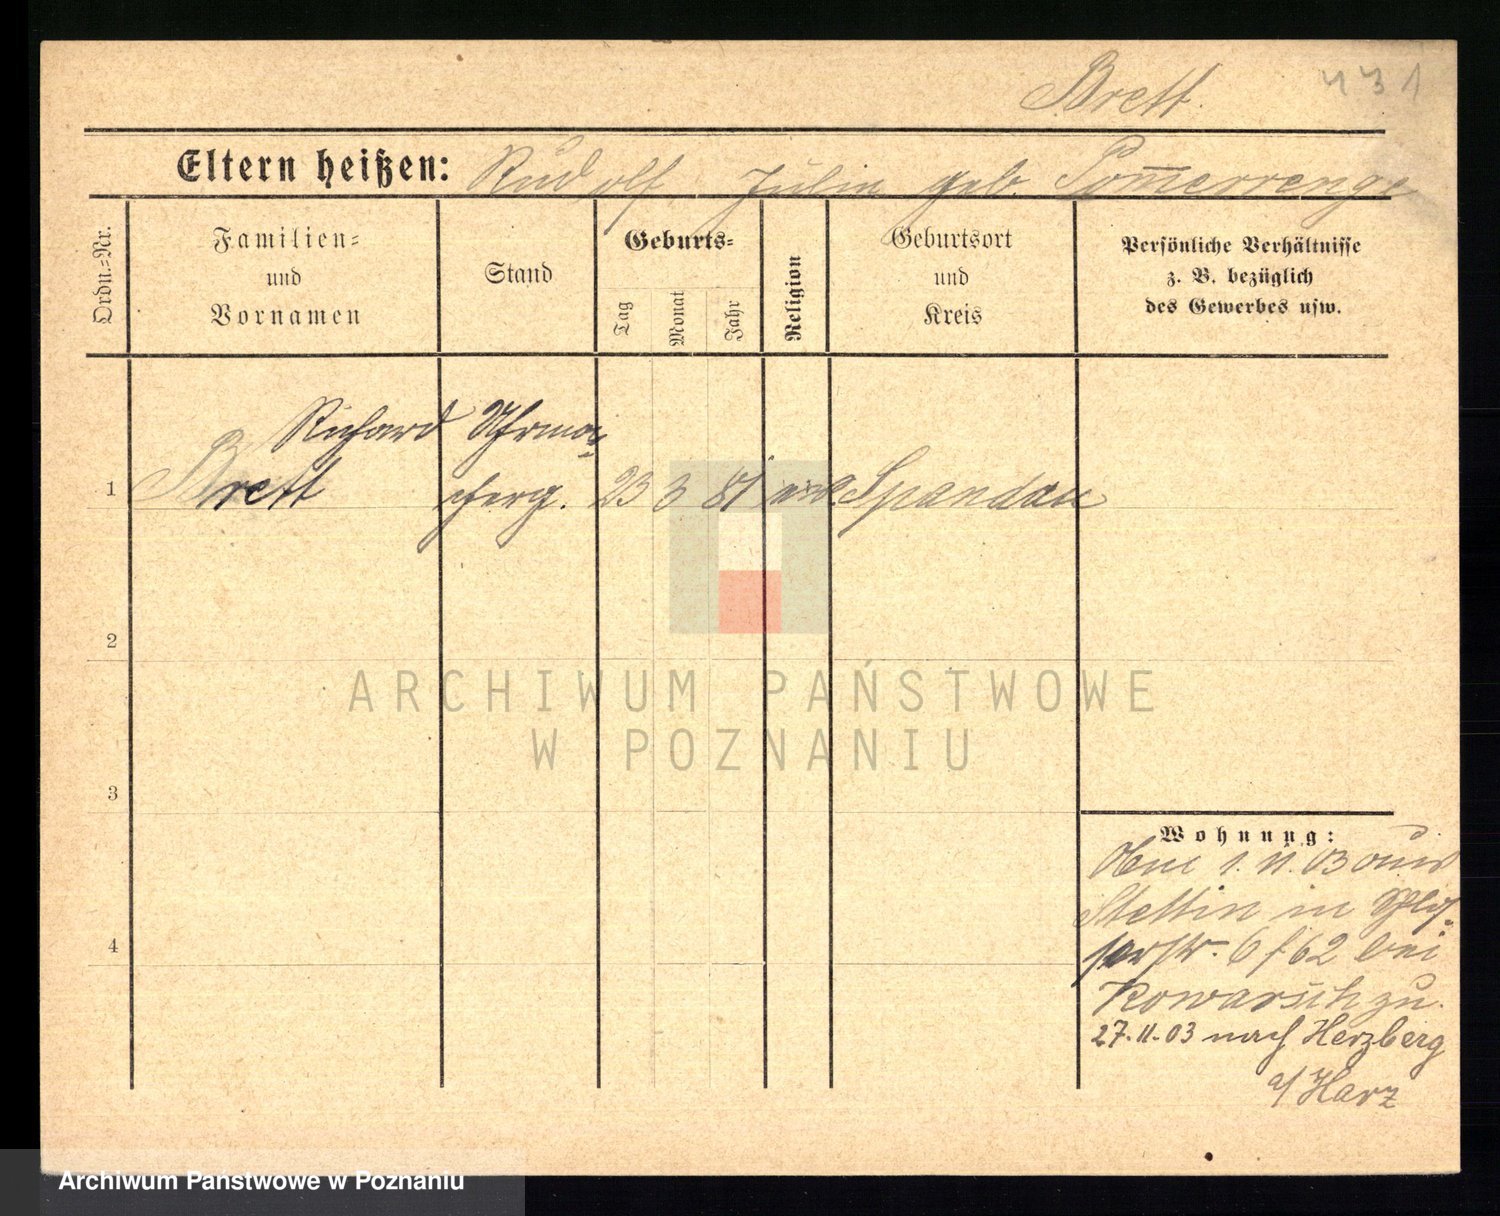 Brett.
431
Eltern heißen: Rudolf, Julie geb Pom̅errenge
Ordn.-Nr.
Familien-
und
Vornamen
Stand
Geburts-
Tag
Monat
Jahr
Religion
Geburtsort
und
Kreis
Persönliche Verhältnisse
z. B. bezüglich
des Gewerbes usw.
Richard Uhrma-
1 Brett cherg. 23 3 81 Spandau
2
ARCHIWUM PAŃSTWOWE
W POZNANIU
3
Wohnung:
1. 11. 03 aus
Stettin in
6 f 62 bei
zu.
27.11.03 nach Herzberg
a/Harz
4
Archiwum Państwowe w Poznaniu